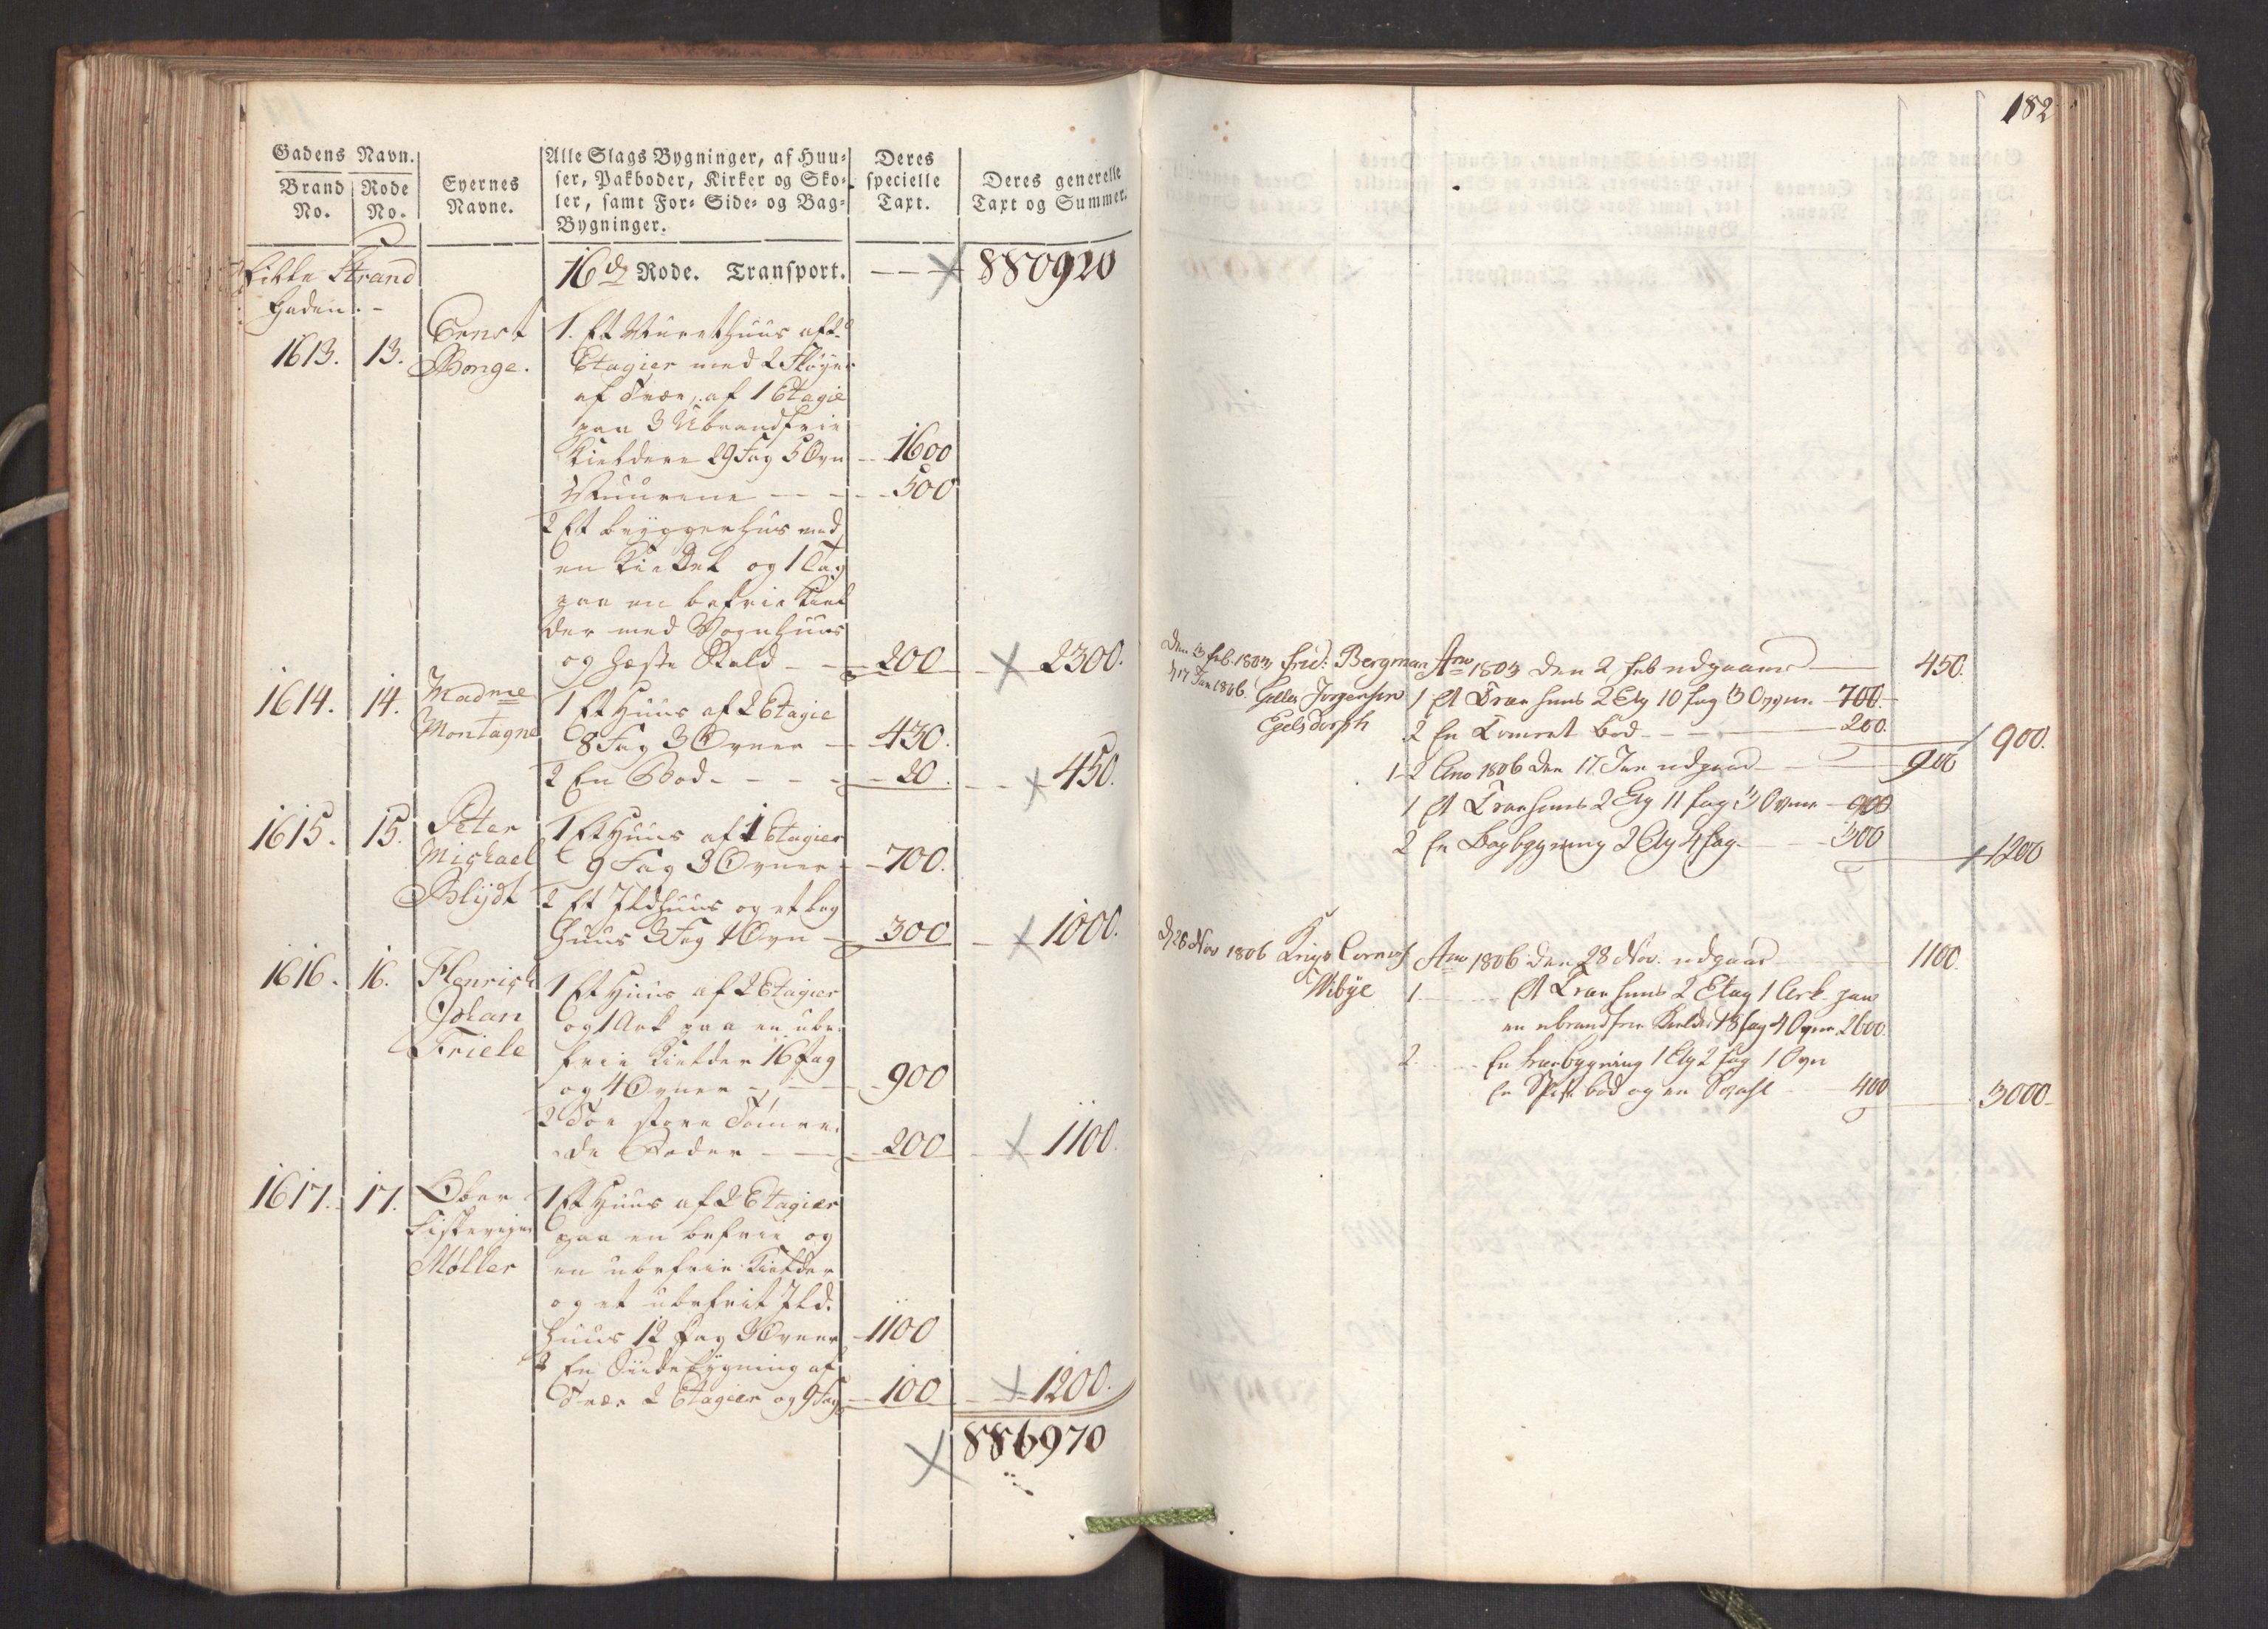 Gadens Navn.
Brand No.
Rode No.
Eyernes Navne.
Alle Slags Bygninger, af Huu-
ser, Pakboder, Kirker og Sko-
ler, samt For- Side- og Bag-
Bygninger.
Deres
specielle
Taxt.
Deres generelle
Taxt og Summer.
Strand
Gaden. -
16d Rode. Transport. 880920
1613. 13. Ernst
Bonge.
1. Et Muurethuus af 2
Etagier med 2 Fløyer
af Træe, af 1 Etagie
paa 3 Ubrandfrie
Kieldere 29 Fag 5 Ovn - 1600
Muurene - - - 500
2 Et bryggerhus med
en Kiedel og 1 Fag
paa en befrie Kiel
der med Vognhuus
og Heste Stald - - 200 - 2300.
1614. 14. Madme
Montagne
1 Et Huus af 2 Etagie
8 Fag 3 Ovner - 430.
2 En Bod - - - - 20. - 450.
1615. 15. Peter
Michael
Blijdt
1 Et Huus af 1 Etagier
9 Fag 3 Ovner - 700.
2 Et Ildhuus og et brg
huus 3 Fag 1 Ovn - 300 - 1000.
1616. 16. Henrich
Johan
Friele
1 Et Huus af 2 Etagier
og 1 Ark paa en ube-
frie Kielder 16 Fag
og 4 Ovner - - 900
2 Toe store Tømre-
de Boder - - 200 - 1100.
1617. 17. Ober
Møller
1 Et Huus af 2 Etagier
paa en befrie og
en ubefrie Kielder
og et ubefriet Ild-
huus 12 Fag 3 Ovner - 1100
2 En Siidebygning af
Træe 2 Etagier og 9 Fag - 100 - 1200.
886970
182
Den 3 Feb. 1803 Frid: Bergman Ano 1803 den 2 Feb udgaaer - 450.
d 17 Jan 1806. Jørgensen 1 Et Træehuus 2 Etg 10 fag 3 Ovner. - 700.
Egelsdorph 2 En Tømret Bod - - 200. 900.
1-2 Ano 1806 den 17. Jan udgaaer - 900
1 Et Træehuus 2 Etg 11 fag 3 Ovner - 900
2 En Bagbygning 2 Etg 4 fag - 300 1200
d 28 Nov 1806 Krigs
Wibÿe
Ano 1806 den 28 Nov. udgaaer 1100.
1. Et Træe huus 2 Etag 1 Ark paa
en ubrandfrie Kielder 18 fag 4 Ovne. 2600.
2. En bygning 1 Etg 2 fag 1 Ovn
En bod og en 400 3000.